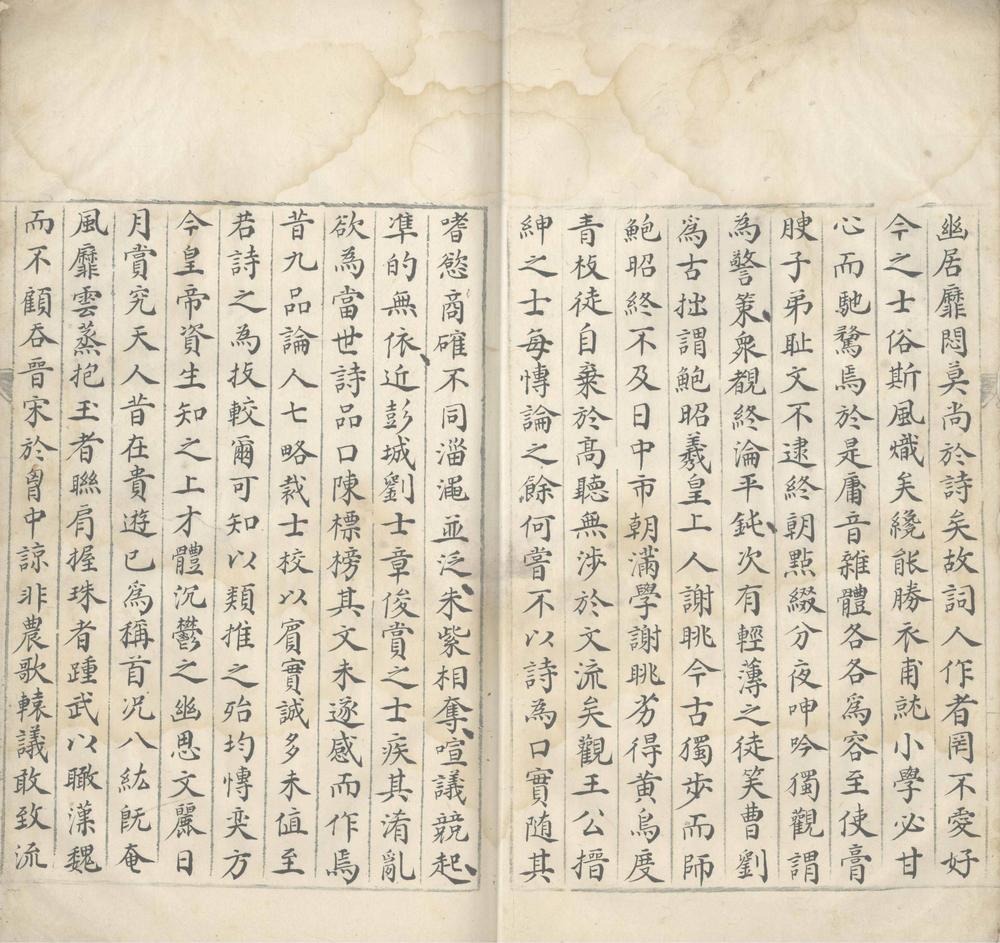 幽居靡悶莫尚於詩矣故詞人作者罔不愛好
今之士俗斯風熾矣纔能勝衣甫就小學必甘
心而馳騖焉於是庸音雜體各各爲容至使膏
腴子弟耻文不逮終朝點綴分夜呻吟獨觀謂
為警策衆覩終淪平鈍次有輕薄之徒笑曹劉
爲古拙謂鮑昭羲皇上人謝眺今古獨步而師
鮑昭終不及日中市朝滿學謝眺劣得黄鳥度
青枝徒自棄於髙聽無涉於文流矣觀王公搢
紳之士每愽論之餘何嘗不以詩為口實随其
嗜慾商確不同淄澠並泛朱紫相奪喧議競起
凖的無依近彭城劉士章俊賞之士疾其淆亂
欲為當世詩品口陳標榜其文未遂感而作焉
昔九品論人七略裁士校以賓實誠多未值至
若詩之為技較爾可知以類推之殆均愽奕方
今皇帝資生知之上才體沉鬱之幽思文麗日
月賞究天人昔在貴遊已爲稱首况八紘旣奄
風靡雲蒸抱玉者聯肩握珠者踵武以瞰漢魏
而不顧吞晉宋於胷中諒非農歌轅議敢致流